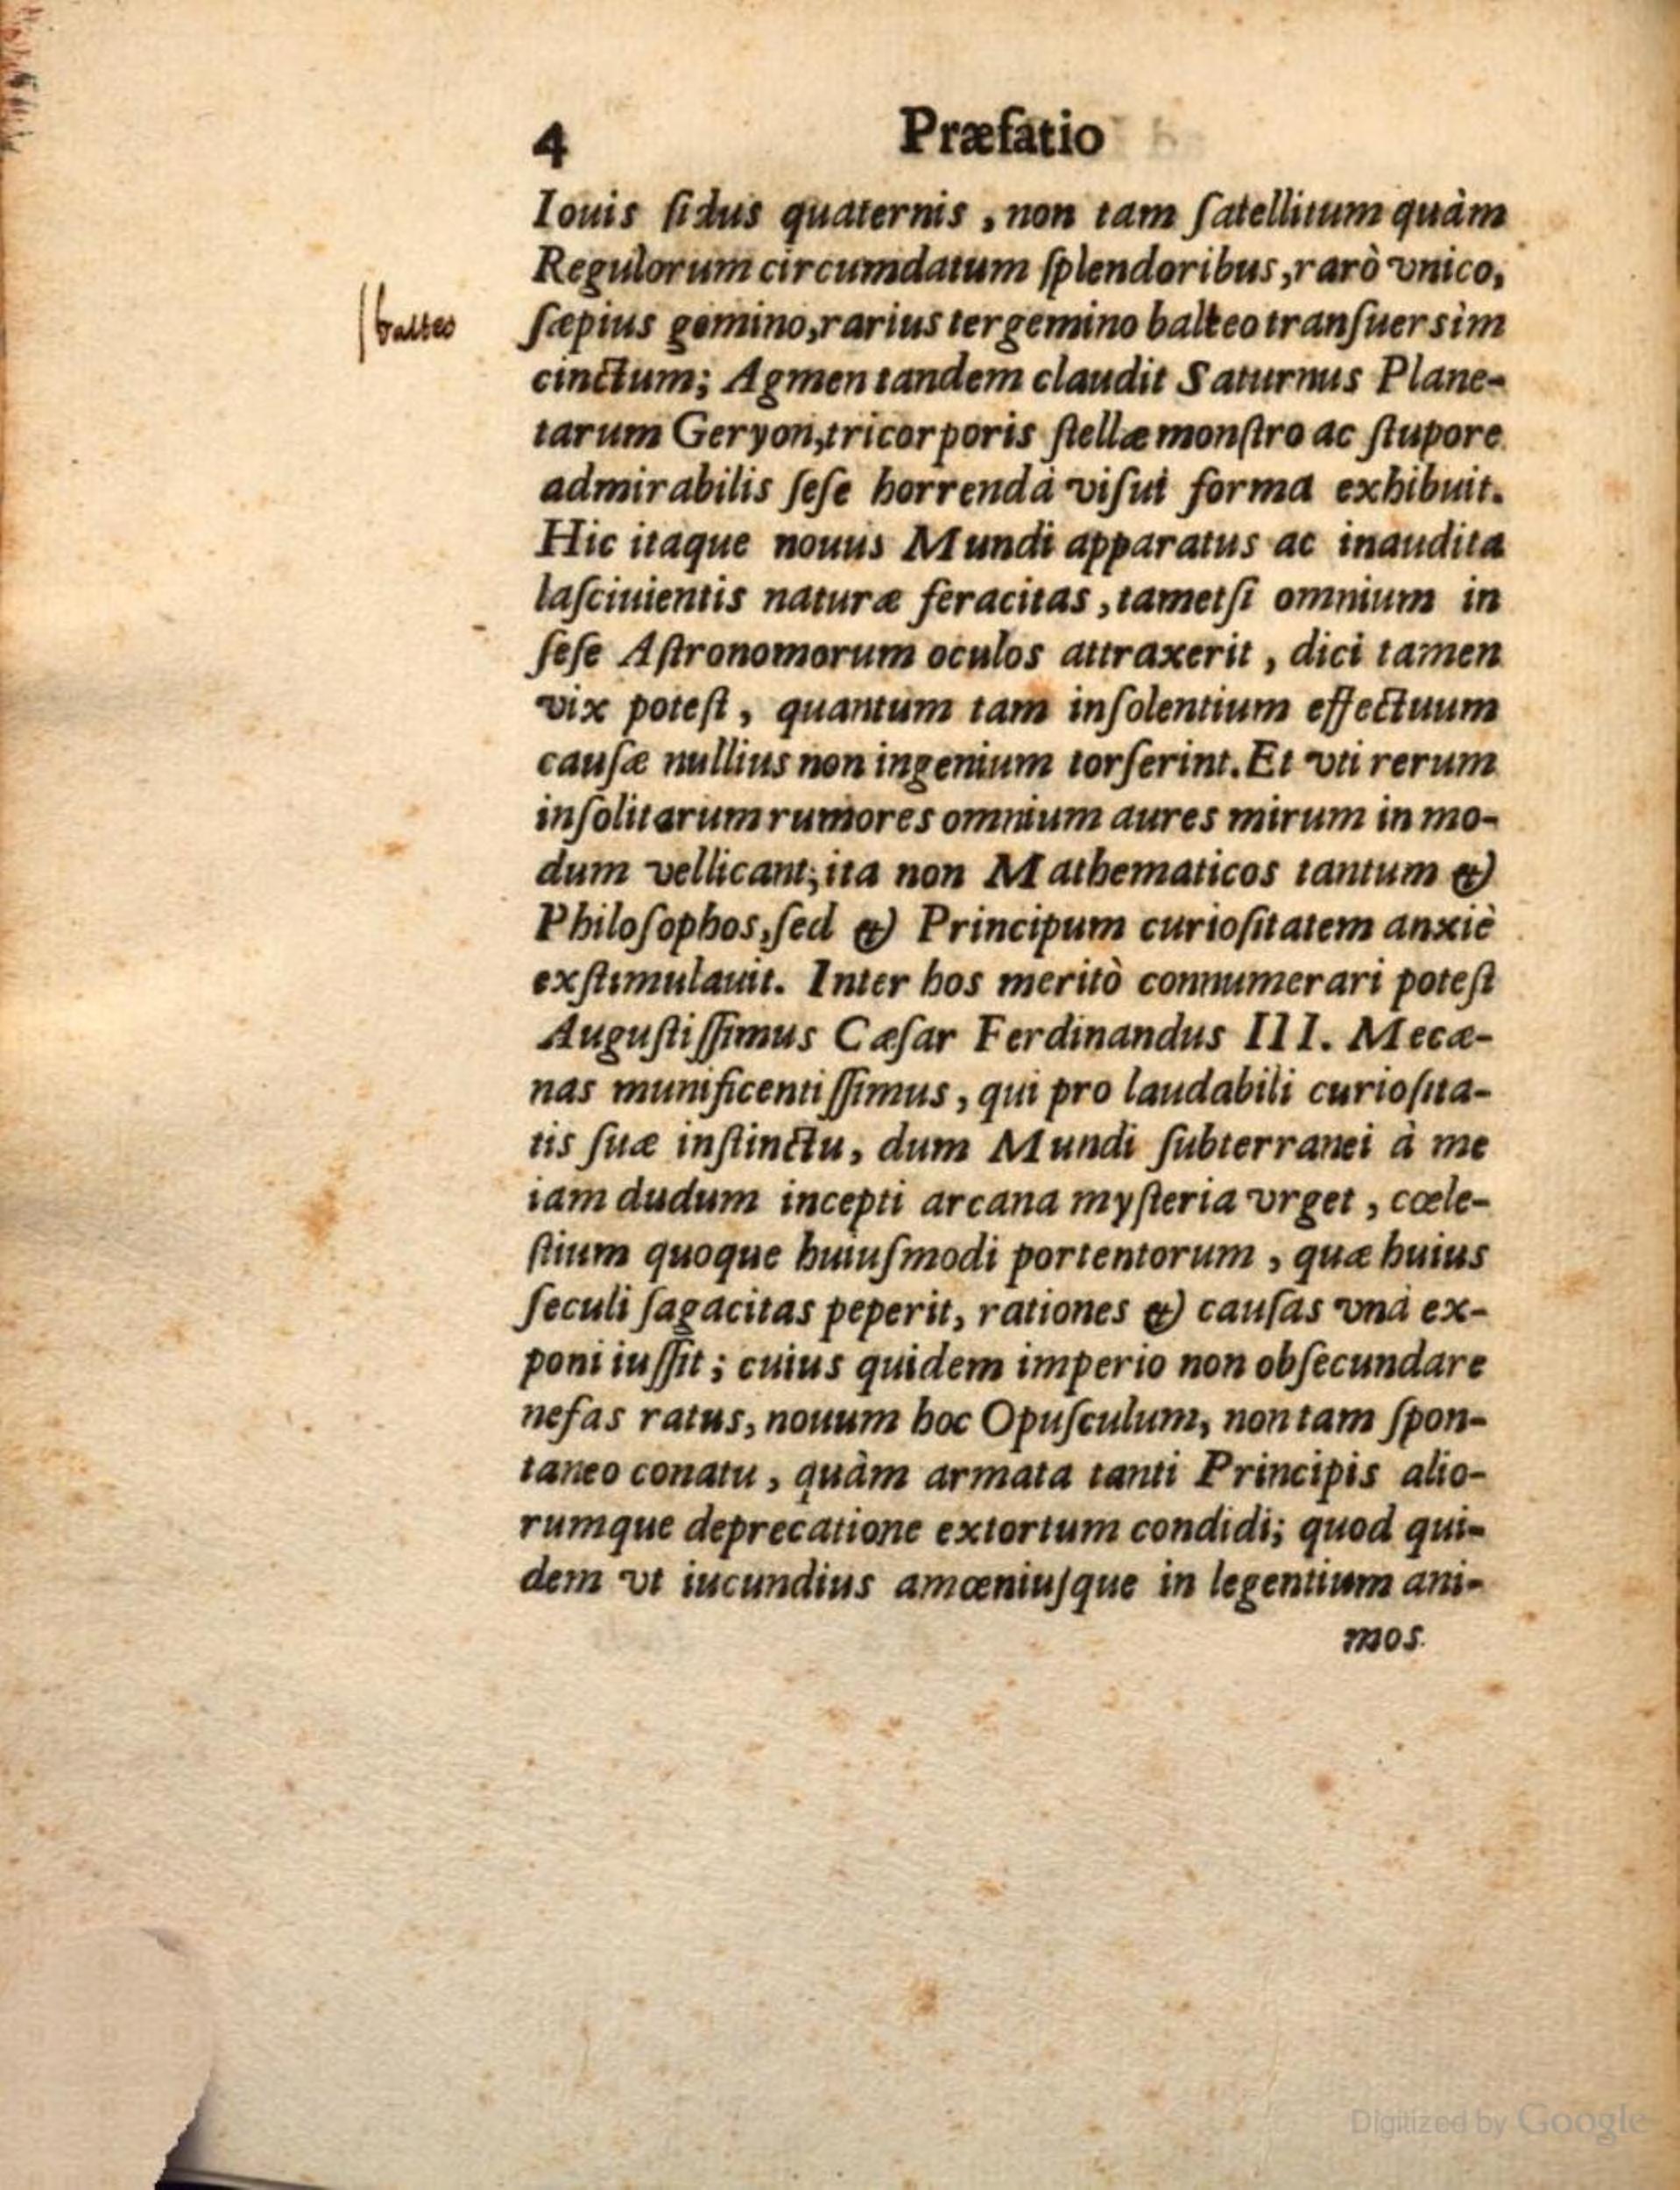 4 Præfatio
Iouis ſidus quaternis, non tam ſatellitum quàm
Regulorum circumdatum ſplendoribus, rarò vnico,
balteo
ſæpius gemino, rarius tergemino balteo tranſuersìm
cinctum; Agmen tandem claudit Saturnus Plane-
tarum Geryon, tricorporis ſtellæ monſtro ac ſtupore
admirabilis ſeſe horrendâ viſui forma exhibuit.
Hic itaque nouus Mundi apparatus ac inaudita
laſciuientis naturæ feracitas, tametſi omnium in
ſeſe Aſtronomorum oculos attraxerit, dici tamen
vix poteſt, quantum tam inſolentium effectuum
cauſæ nullius non ingenium torſerint. Et vti rerum
inſolitarum rumores omnium aures mirum in mo-
dum vellicant; ita non Mathematicos tantum &
Philoſophos, ſed & Principum curioſitatem anxiè
exſtimulauit. Inter hos meritò connumerari poteſt
Auguſtiſſimus Cæſar Ferdinandus III. Mecæ-
nas munificentiſſimus, qui pro laudabili curioſita-
tis ſuæ inſtinctu, dum Mundi ſubterranei à me
iam dudum incepti arcana myſteria vrget, cœle-
ſtium quoque huiuſmodi portentorum, quæ huius
ſeculi ſagacitas peperit, rationes & cauſas vnà ex-
poni iuſſit; cuius quidem imperio non obſecundare
nefas ratus, nouum hoc Opuſculum, non tam ſpon-
taneo conatu, quàm armata tanti Principis alio-
rumque deprecatione extortum condidi; quod qui-
dem vt iucundius amœniuſque in legentium ani-
mos
Digitized by Google